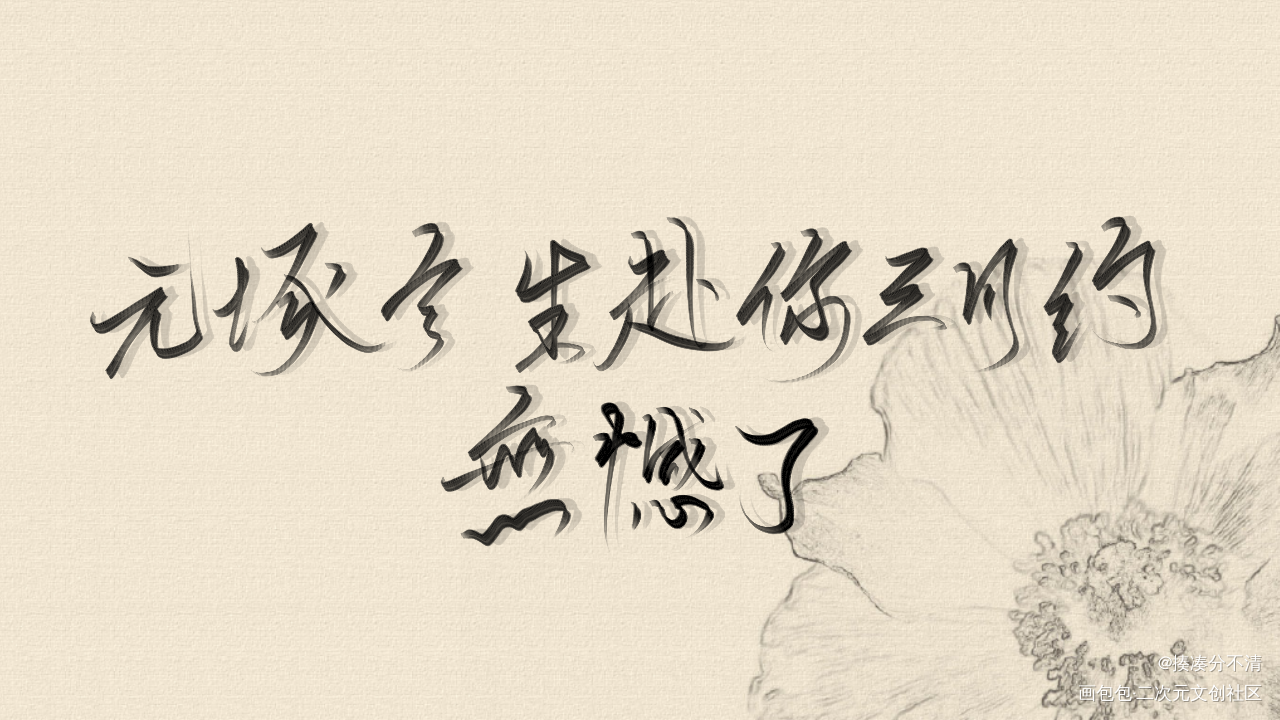 元琢今生赴你三月约
無憾了
@揍凑分不清
画包包·二次元文创社区